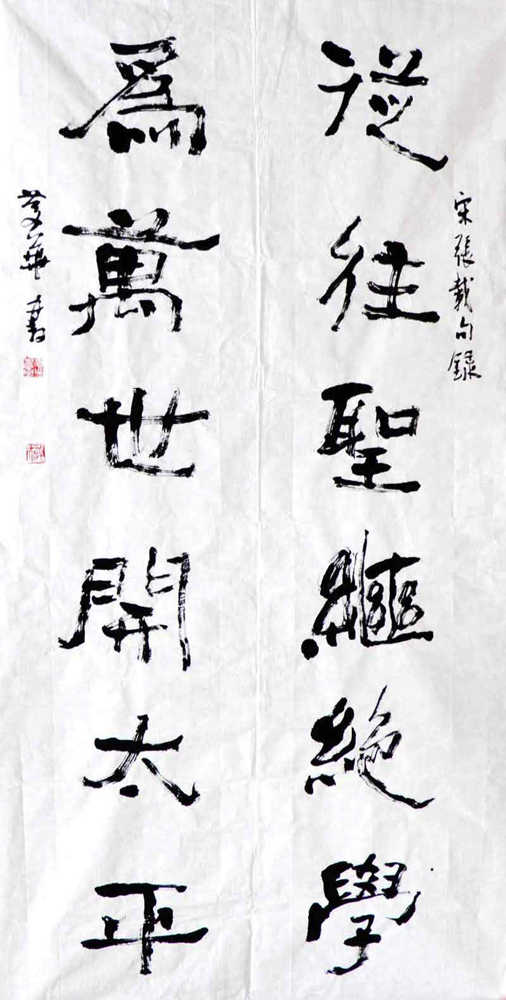 宋張載句錄
從往聖繼絕學
爲萬世開太平
華書